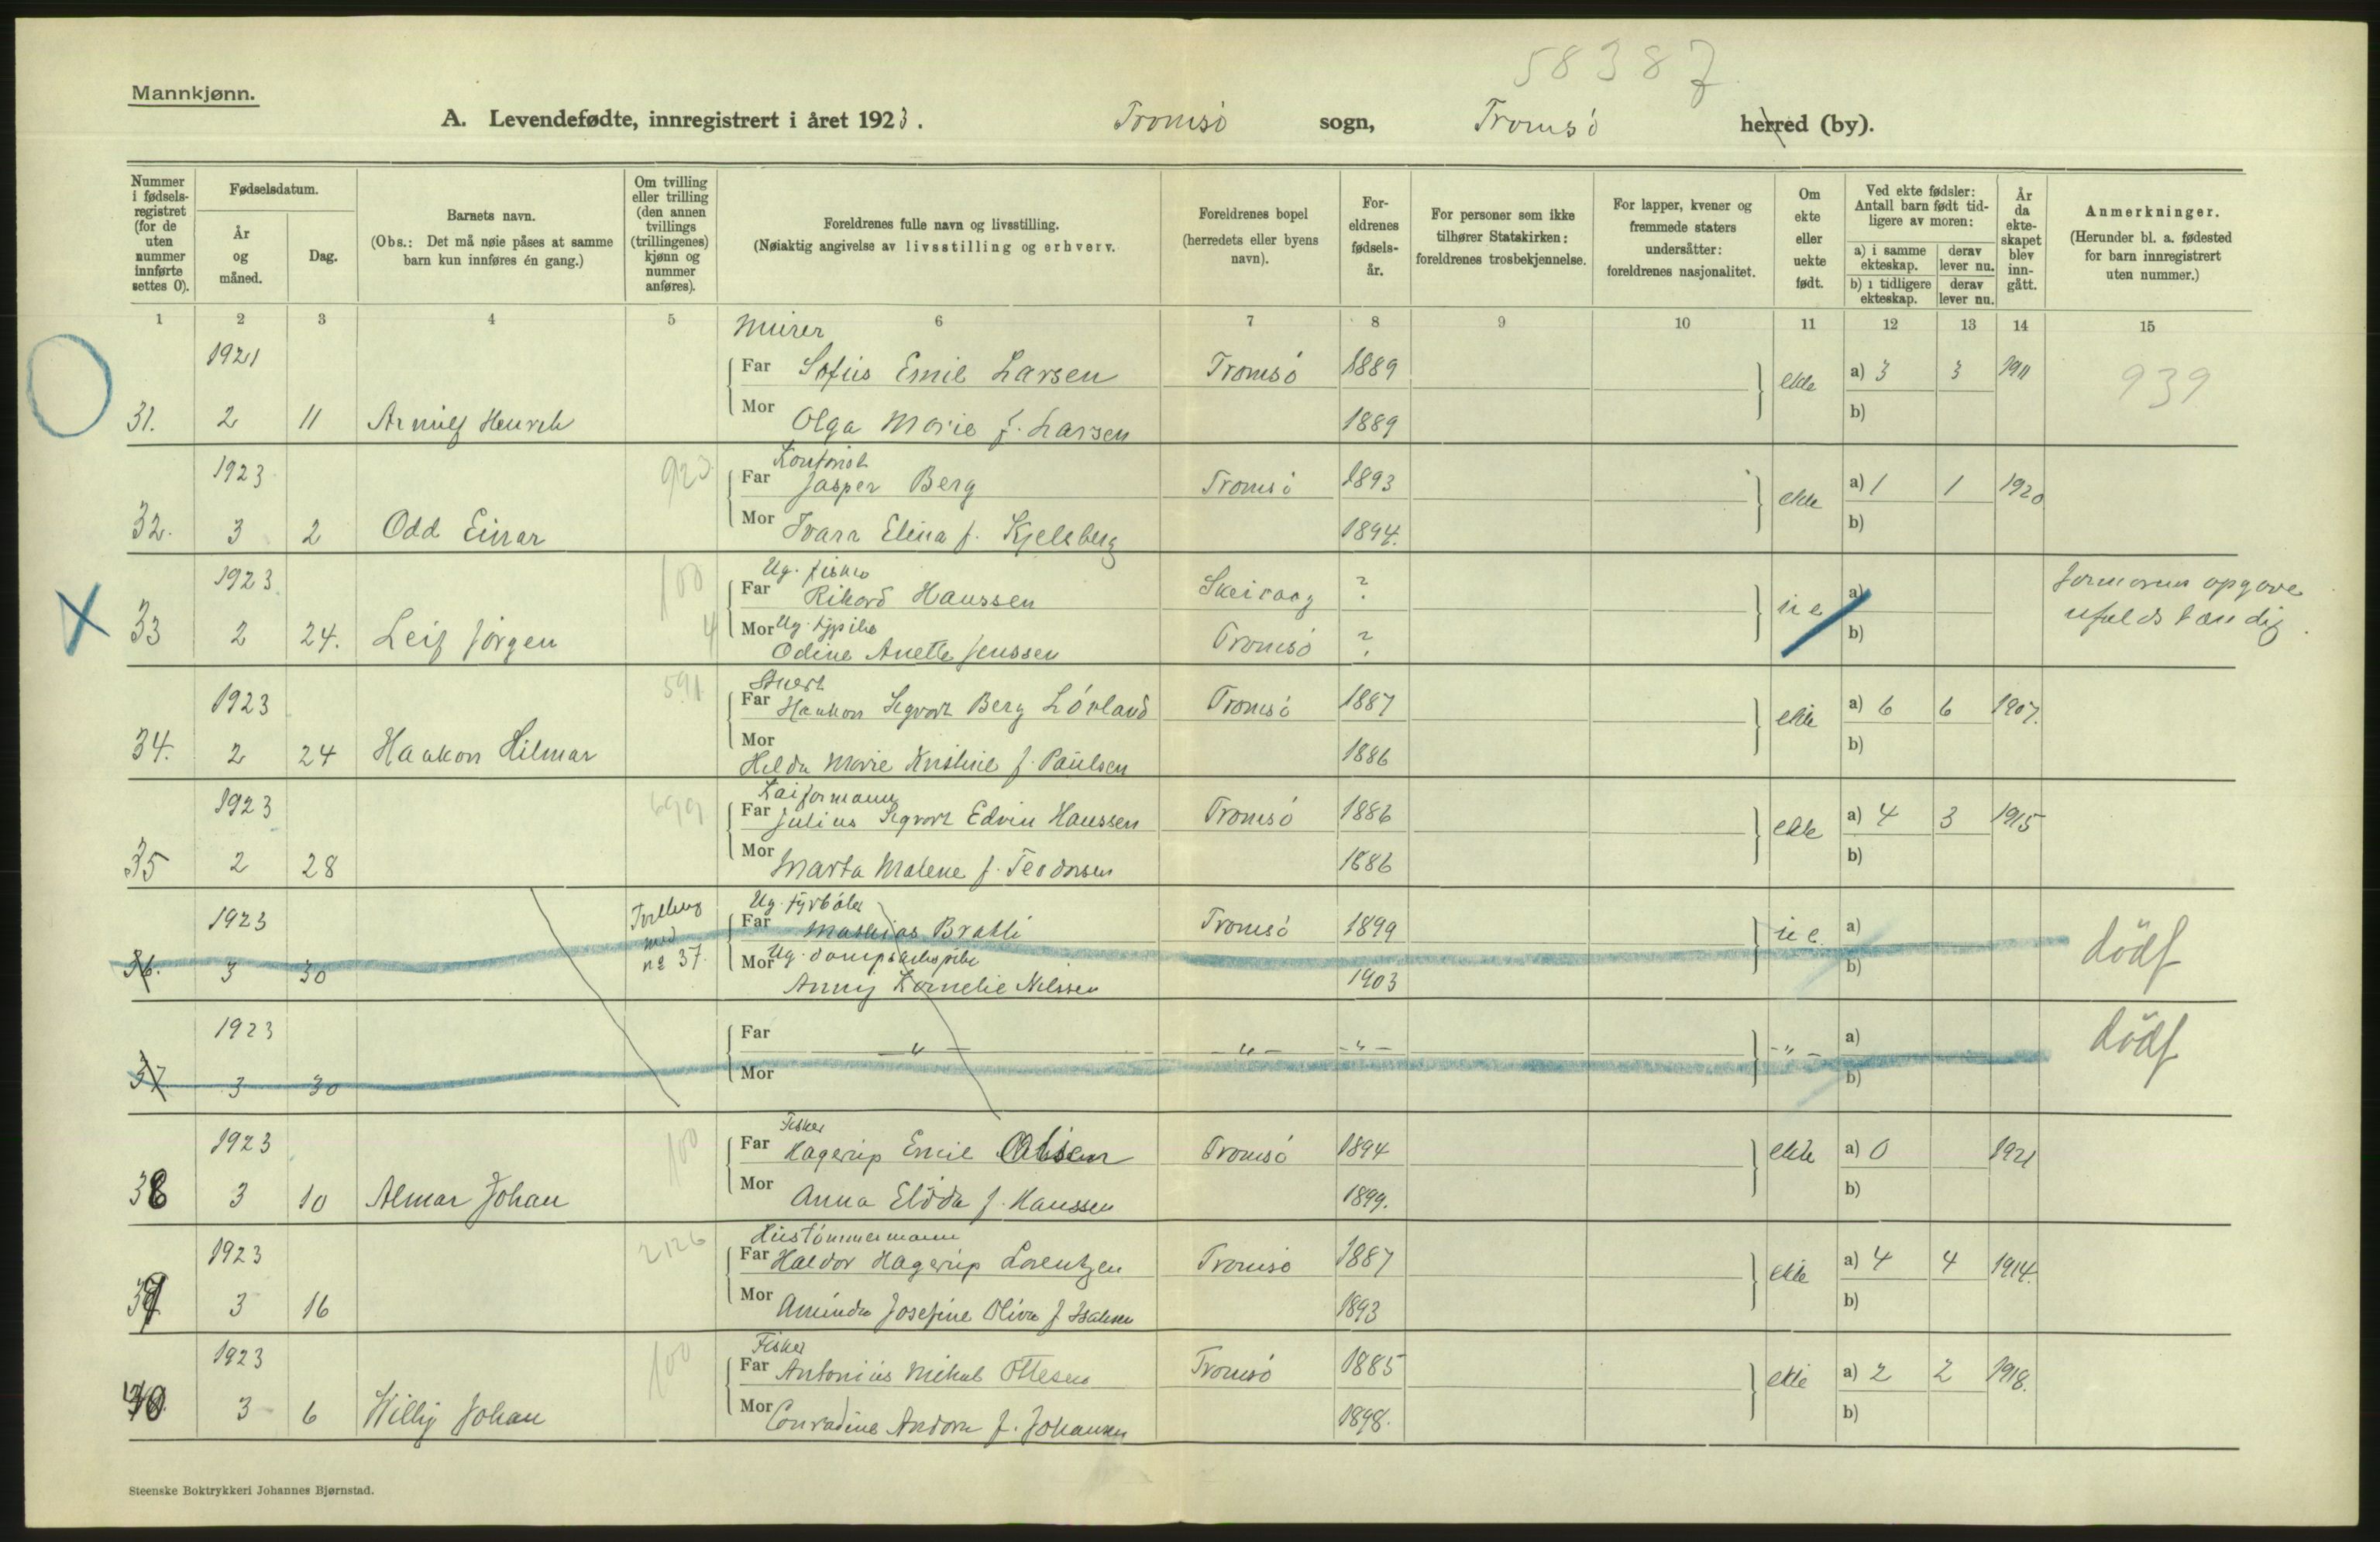 58387
Mannkjønn.
A. Levendefødte, innregistrert i året 1923. Tromsö sogn, Tromsö herred (by).
Nummer i fødsels-registret (for de uten nummer innførte settes 0).
Fødselsdatum.
År og måned.
Dag.
Barnets navn.
(Obs.: Det må nøie påses at samme barn kun innføres én gang.)
Om tvilling eller trilling (den annen tvillings (trillingenes) kjønn og nummer anføres).
Foreldrenes fulle navn og livsstilling.
(Nøiaktig angivelse av livsstilling og erhverv.
Foreldrenes bopel (herredets eller byens navn).
For-eldrenes fødsels-år.
For personer som ikke tilhører Statskirken: foreldrenes trosbekjennelse.
For lapper, kvener og fremmede staters undersåtter: foreldrenes nasjonalitet.
Om ekte eller uekte født.
Ved ekte fødsler: Antall barn født tid-ligere av moren:
a) i samme ekteskap. derav lever nu.
b) i tidligere ekteskap. derav lever nu.
År da ekte-skapet blev inn-gått.
Anmerkninger.
(Herunder bl. a. fødested for barn innregistrert uten nummer.)
1 2 3 4 5 6 7 8 9 10 11 12 13 14 15
Murer
1921 Far Sofus Emil Larsen Tromsö 1889 ekte a) 3 3 1911 939
31. 2 11 Arnulf Henrik Mor Olga Marie f. Larsen 1889 b)
Kontorist
1923 923 Far Jasper Berg Tromsö 1893 ekte a) 1 1 1920
32. 3 2 Odd Einar Mor Ivara Elina f. Kjelsberg 1894. b)
Ug. fisker
1923 100 Far Rikard Hanssen ? ue a) formorens opgave
Mor Ug.
33 2 24. Leif Jörgen 4 Odine Anette Jenssen Tromsö ? b) ufuldstændig.
Stuert
1923 591 Far Haakon Sigvart Berg Lövland Tromsö 1887 ekte a) 6 6 1907.
34. 2 24 Haakon Hilmar Mor Hilda Marie Kristine f. Paulsen 1886 b)
Kaiformann
1923 699 Far Julius Sigvart Edvin Hanssen Tromsö 1886 ekte a) 4 3 1915
35 2 28 Mor Marta Malene f. Teodorsen 1886 b)
Ug. fyrböter
1923 Tvilling med nº 37. Far Mathias Bratli Tromsö 1899 ue. a) dödf
Mor Ug.
36. 3 30 Anny Kornelie Nilssen 1903 b)
1923 Far -"- -"- -"- -"- a) dödf
37 3 30 Mor b)
Fisker
1923 100 Far Hagerup Emil Olsen Tromsö 1894 ekte a) 0 1921
38 3 10 Almar Johan Mor Anna Elida f. Hanssen 1899. b)
Hustömmermann
1923 2126 Far Haldor Hagerup Lorentzen Tromsö 1887 ekte a) 4 4 1914.
39 3 16 Mor Aminda Josefine Oliva f. Isaksen 1893 b)
Fisker
1923 100 Far Antonius Mikal Ottesen Tromsö 1885 ekte a) 2 2 1918.
40 3 6 Willy Johan Mor Conradine Andora f. Johansen 1898. b)
Steenske Boktrykkeri Johannes Bjørnstad.